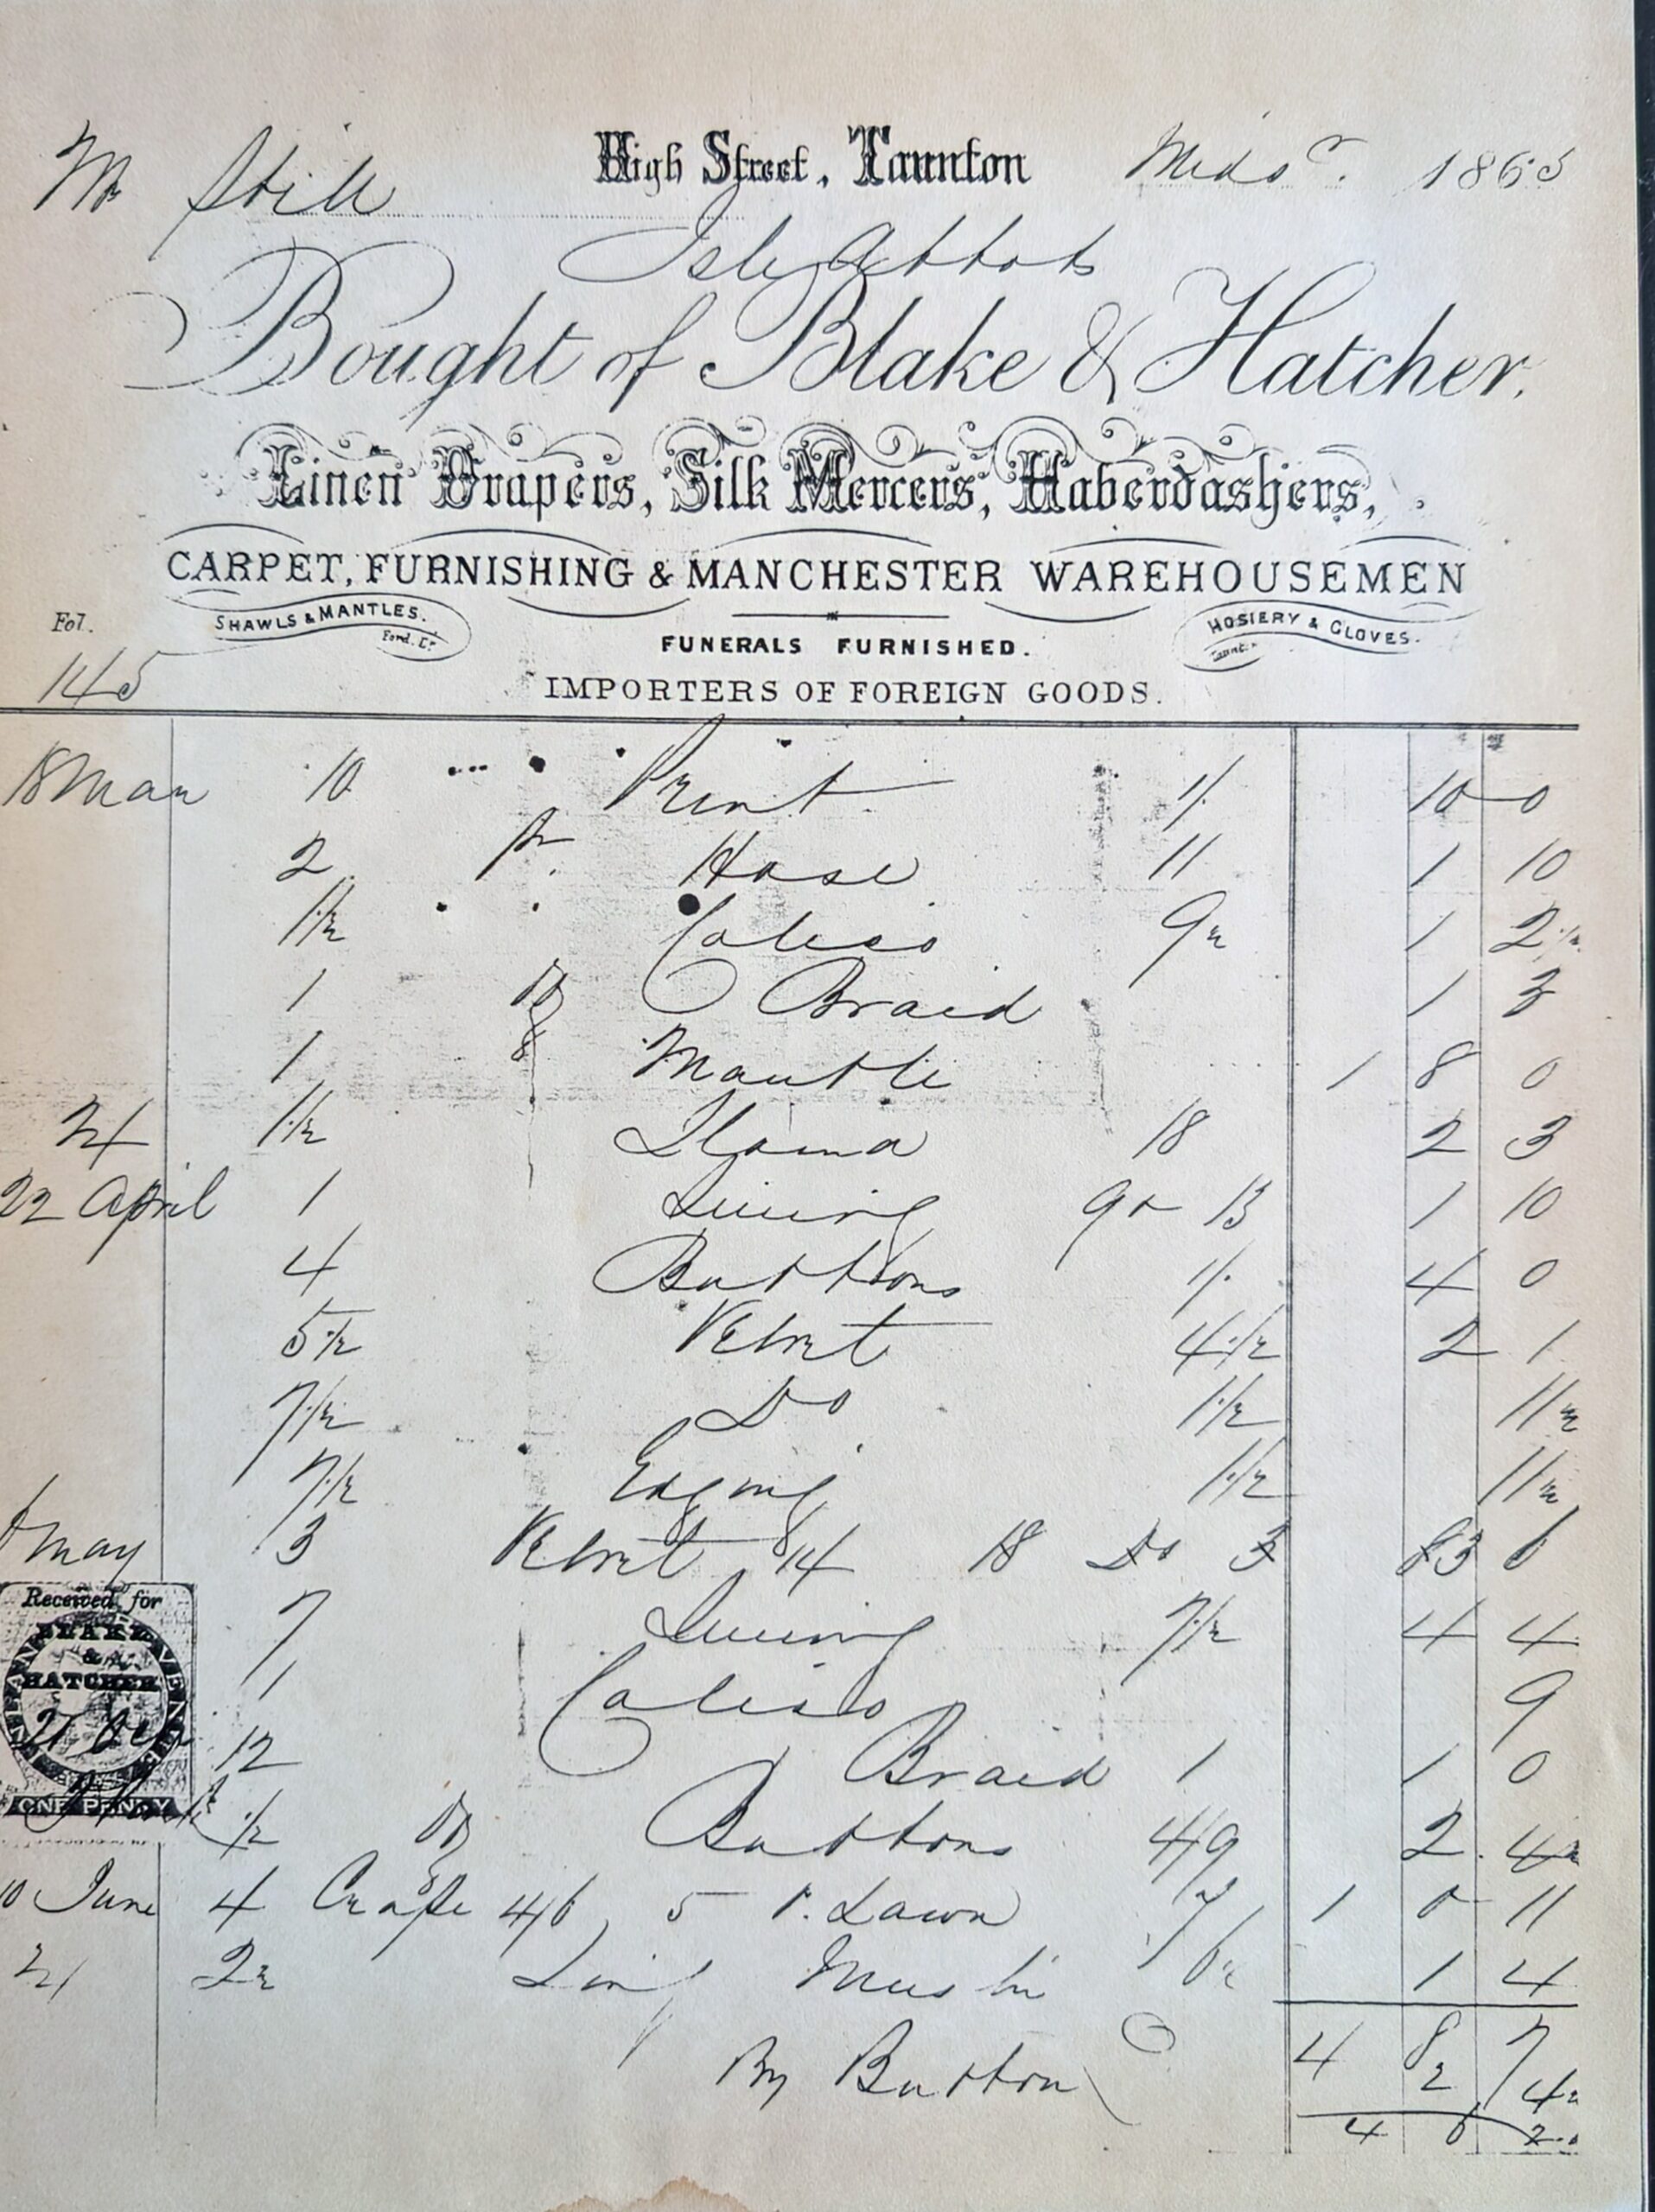 Mr Still High Street, Taunton Midsr. 1865
Isle Abbots
Bought of Blake & Hatcher.
Linen Drapers, Silk Mercers, Haberdashers,
CARPET, FURNISHING & MANCHESTER WAREHOUSEMEN
SHAWLS & MANTLES. HOSIERY & GLOVES.
Fol. FUNERALS FURNISHED.
145 IMPORTERS OF FOREIGN GOODS.
18 Mar 10 Print 1/. 10 0
2 pr. Hose 11 1 10
1 1/2 Calico 9 1/2 1 2 1/2
1 Braid 1 3
1 Mantle 1 8 0
24 1 1/2 Llama 18 2 3
22 April 1 Lining 9 13 1 10
4 Buttons 1/. 4 0
5 1/2 Velvet 4 1/2 2 1
7 1/2 Do 1 1/2 11 1/2
7 1/2 Edging 1 1/2 11 1/2
May 3 Velvet 14 18 Do 3 3 6
7 Lining 7 1/2 4 4
1 Calico 9
12 Braid 1 1 0
1/2 Buttons 4/9 2 4 1/2
10 June 4 Crape 4/6 5 Lawn 7 1 0 11
21 2 1/2 Muslin 6 1/2 1 4
4 8 7
By Button 2 4 1/2
4 6 2 1/2
Received for
BLAKE
&
HATCHER
ONE PENNY